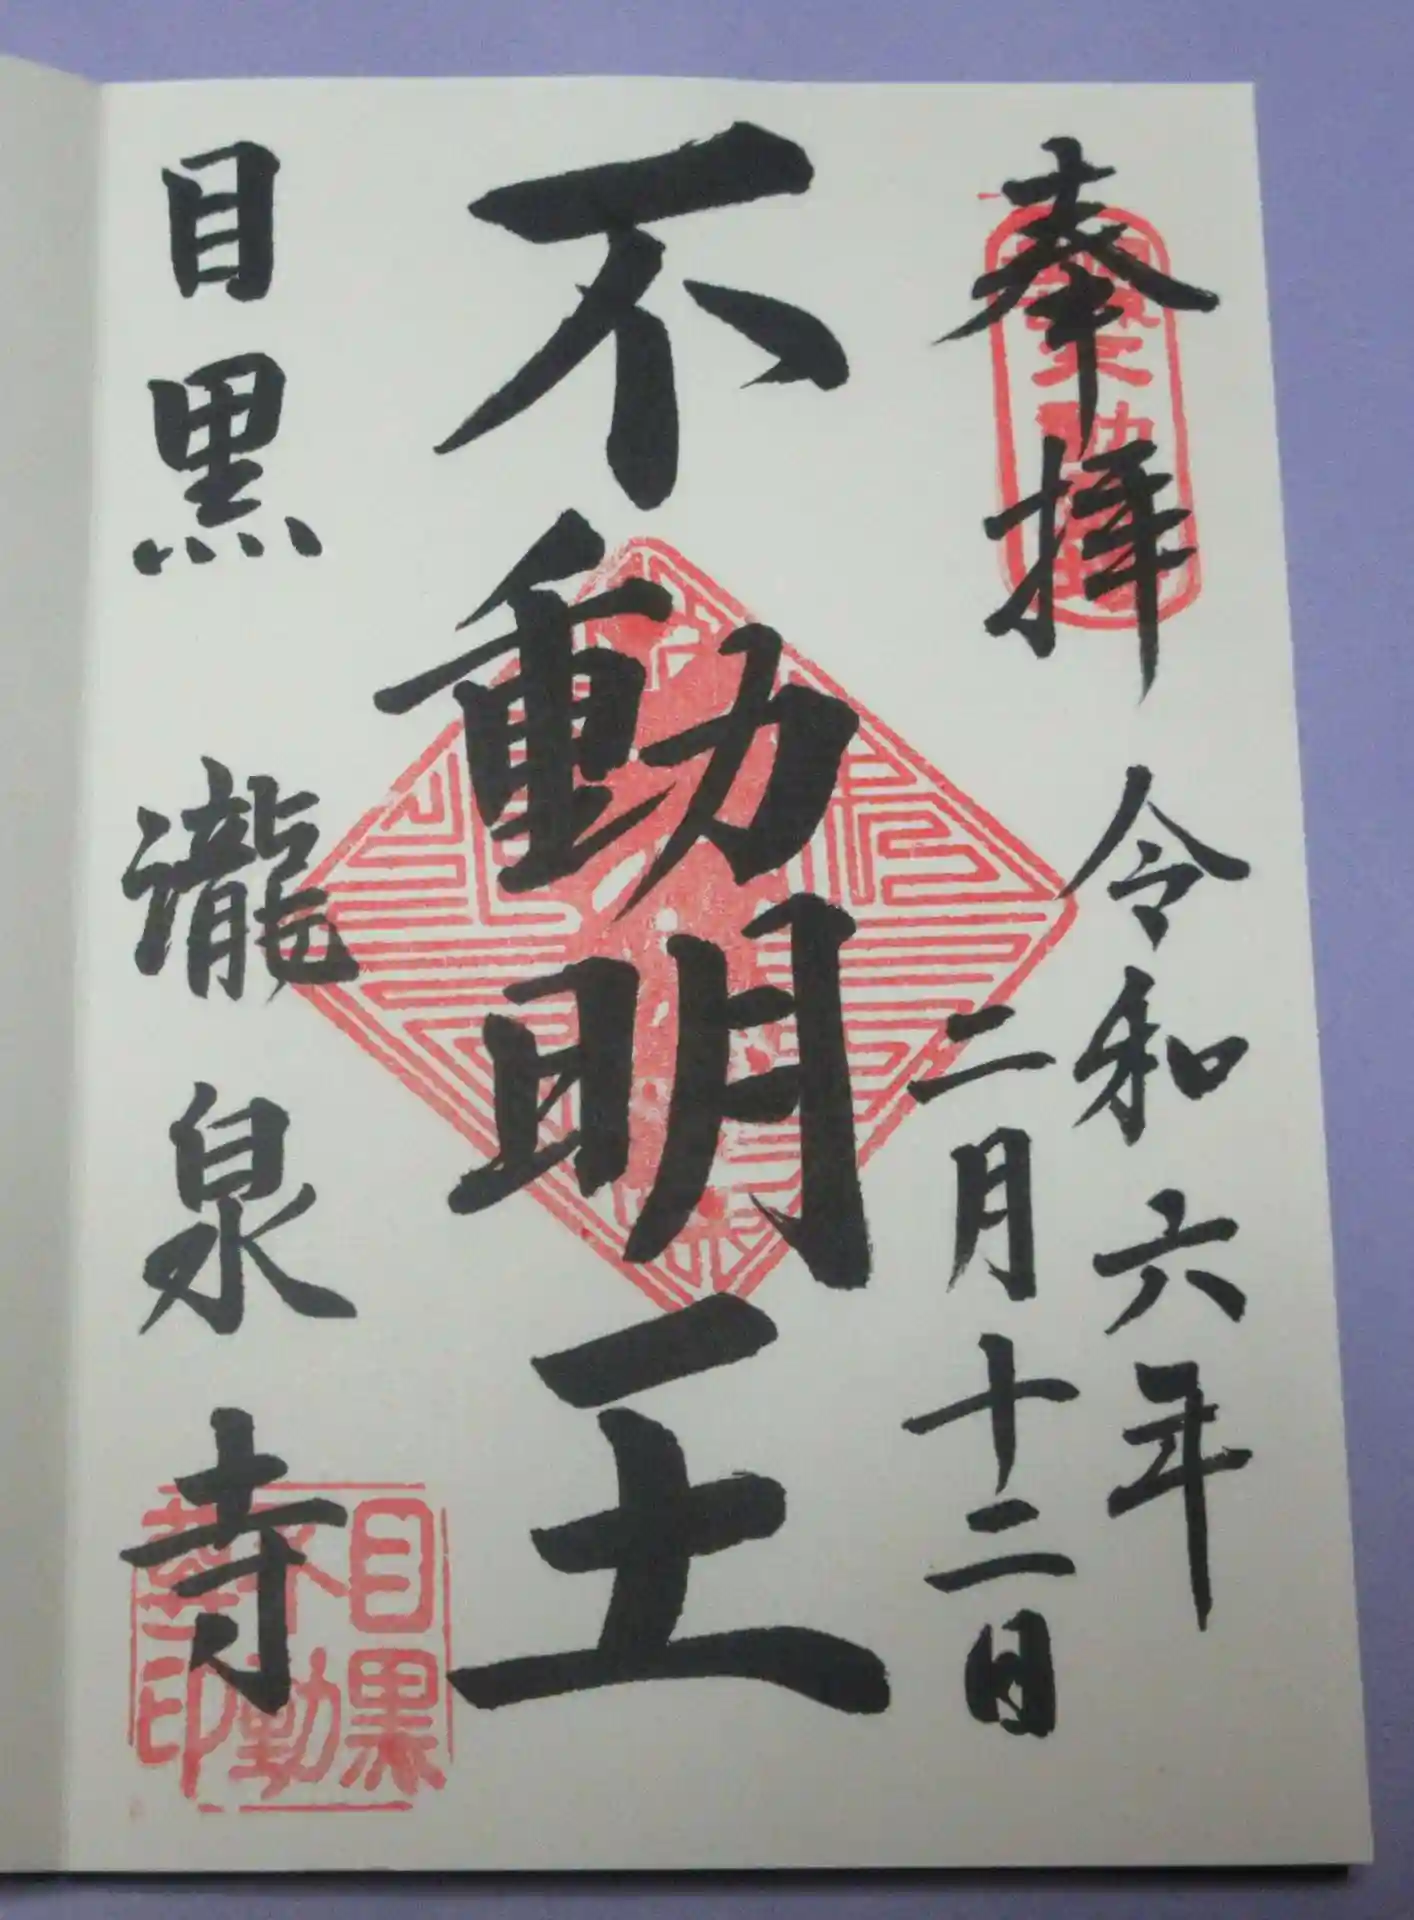 奉拝
令和六年
二月十二日
不動明王
目黒 瀧泉寺
目黒
不動
印